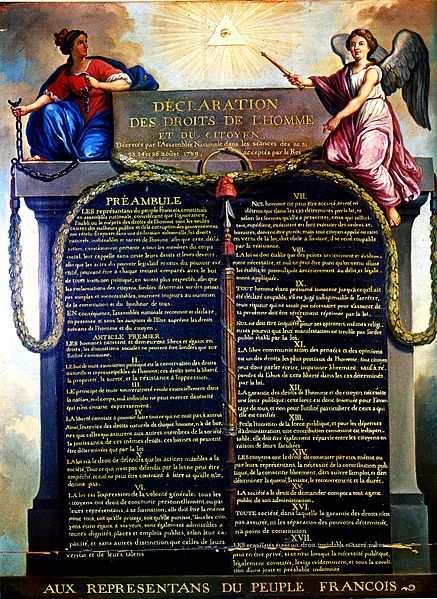 DÉCLARATION
DES DROITS DE L'HOMME
ET DU CITOYEN,
Décrétés par l'Assemblée Nationale dans les séances des 20, 21
23, 24 et 26 août 1789, acceptés par le Roi
PRÉAMBULE
LES représentans du peuple François constitués
en assemblée nationale, considérant que l'ignorance,
l'oubli ou le mépris des droits de l'homme sont les seules
causes des malheurs publics et de la corruption des gouvernemens
ont résolu d'exposer dans une déclaration solemnelle, les droits
naturels, inaliénables et sacrés de l'homme; afin que cette décla-
ration, constamment présente à tous les membres du corps
social, leur rappelle sans cesse leurs droits et leurs devoirs;
afin que les actes du pouvoir législatif et ceux du pouvoir exé-
cutif, pouvant être à chaque instant comparés avec le but
de toute institution politique, en soient plus respectés; afin que
les réclamations des citoyens, fondées désormais sur des princi-
pes simples et incontestables, tournent toujours au maintien
de la constitution et du bonheur de tous.
EN conséquence, l'assemblée nationale reconnoit et déclare
en présence et sous les auspices de l'Etre suprême les droits
suivans de l'homme et du citoyen.
ARTICLE PREMIER.
LES hommes naissent et demeurent libres et égaux en
droits, les distinctions sociales ne peuvent être fondées que sur
l'utilité commune.
II.
LE but de toute association politique est la conservation des droits
naturels et imprescriptibles de l'homme; ces droits sont la liberté,
la propriété, la sureté, et la résistance à l'oppression.
III.
LE principe de toute souveraineté réside essentiellement dans
la nation, nul corps, nul individu ne peut exercer d'autorité
qui n'en émane expressément.
IV.
LA liberté consiste à pouvoir faire tout ce qui ne nuit pas à autrui
Ainsi, l'exercice des droits naturels de chaque homme, n'a de bor-
nes que celles qui assurent aux autres membres de la société
la jouissance de ces mêmes droits; ces bornes ne peuvent
être déterminées que par la loi
V.
LA loi n'a le droit de défendre que les actions nuisibles à la
société. Tout ce qui n'est pas défendu par la loi ne peut être
empêché, et nul ne peut être contraint à faire ce qu'elle n'or-
donne pas.
VI.
LA loi est l'expression de la volonté générale; tous les
citoyens ont droit de concourir personnellement, ou par
leurs représentans, à sa formation; elle doit être la même
pour tous, soit qu'elle protège, soit qu'elle punisse. Tous les citoy-
ens étant égaux à ses yeux, sont également admissibles à
toutes dignités, places et emplois publics, selon leur ca-
pacité, et sans autres distinction que celles de leurs
vertus et de leurs talens.
VII.
NUL homme ne peut être accusé, arrêté, ni
détenu que dans les cas déterminés par la loi, et
selon les formes qu'elle a prescrites, ceux qui sollici-
tent, expédient, exécutent ou font exécuter des ordres ar-
bitraires, doivent être punis; mais tout citoyen appelé ou saisi
en vertu de la loi, doit obéir à l'instant, il se rend coupable
par la résistance.
VIII.
LA loi ne doit établir que des peines strictement et évidem-
ment nécessaires, et nul ne peut être puni qu'en vertu d'une
loi établie et promulguée antérieurement au délit, et légale-
ment appliquée.
IX.
TOUT homme étant présumé innocent jusqu'à ce qu'il ait
été déclaré coupable, s'il est jugé indispensable de l'arrêter,
toute rigueur qui ne seroit pas nécessaire pour s'assurer de
sa personne doit être sévèrement réprimée par la loi.
X.
NUL ne doit être inquiété pour ses opinions, mêmes reli-
gieuses pourvu que leur manifestation ne trouble pas l'ordre
public établi par la loi.
XI.
LA libre communication des pensées et des opinions
est un des droits les plus précieux de l'homme; tout citoyen
peut donc parler, écrire, imprimer librement, sauf à ré-
pondre de l'abus de cette liberté dans les cas déterminés
par la loi.
XII.
LA garantie des droits de l'homme et du citoyen nécessite
une force publique; cette force est donc instituée pour l'avan-
tage de tous, et non pour l'utilité particulière de ceux à qui
elle est confiée.
XIII.
POUR l'entretien de la force publique, et pour les dépenses
d'administration, une contribution commune est indispen-
sable; elle doit être également répartie entre les citoyens en
raison de leurs facultés.
XIV.
LES citoyens ont le droit de constater par eux même ou
par leurs représentans, la nécessité de la contribution pub-
lique, de la consentir librement, d'en suivre l'emploi, et d'en
déterminer la quotité, l'assiette, le recouvrement et la durée.
XV.
LA société a le droit de demander compte à tout agent
public de son administration.
XVI.
TOUTE société, dans laquelle la garantie des droits n'est
pas assurée, ni la séparation des pouvoirs déterminée,
n'a point de constitution.
XVII.
LES propriétés étant un droit inviolable et sacré, nul ne
peut en être privé, si ce n'est lorsque la nécessité publique,
légalement constatée, l'exige évidemment, et sous la condi-
tion d'une juste et préalable indemnité.
AUX REPRESENTANS DU PEUPLE FRANCOIS